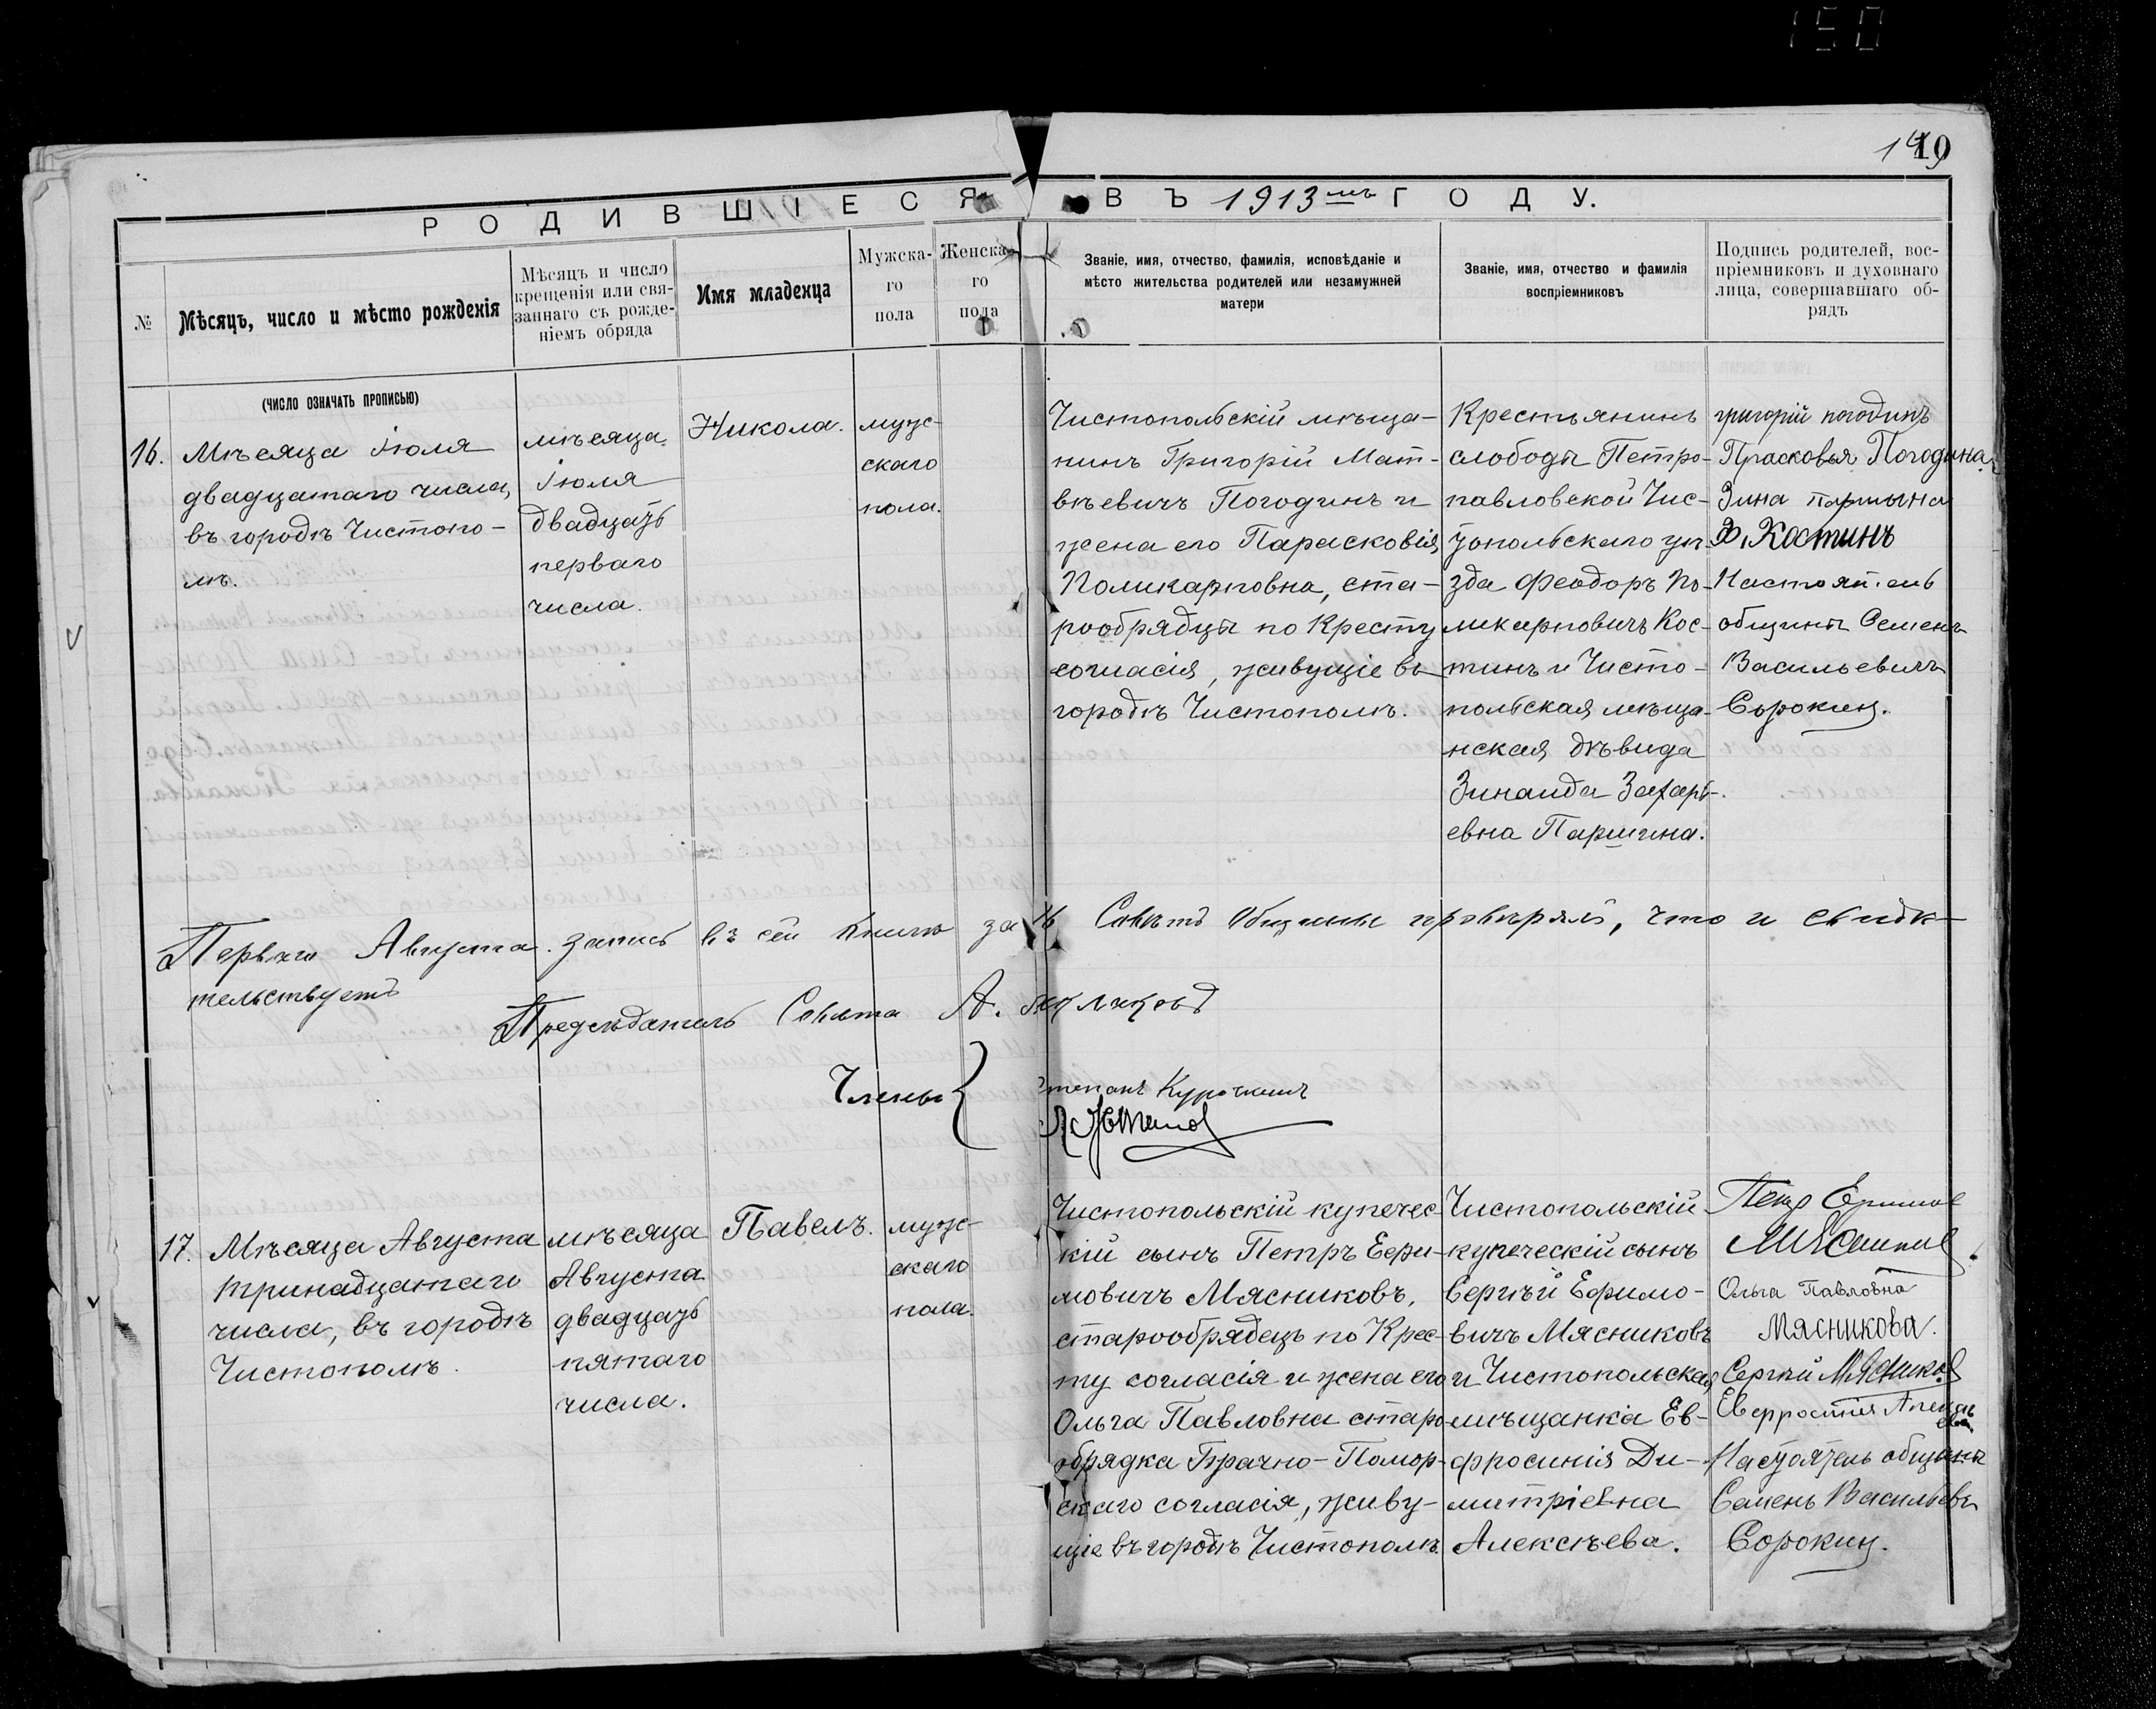 150
10
РОДИВШІЕСЯ ВЪ 1913мъ ГОДУ.
№
Мѣсяцъ, число и мѣсто рожденія
Мѣсяцъ и число
крещенія или свя-
заннаго съ рожде-
ніемъ обряда
Имя младенца
Мужска-
го
пола
Женска-
го
пола
Званіе, имя, отчество, фамилія, исповѣданіе и
мѣсто жительства родителей или незамужней
матери
Званіе, имя, отчество и фамилія
воспріемниковъ
Подпись родителей, вос-
пріемниковъ и духовнаго
лица, совершавшаго об-
рядъ
(ЧИСЛО ОЗНАЧАТЬ ПРОПИСЬЮ)
16.
Мѣсяца Іюля
двадцатаго числа,
въ городѣ Чистопо-
лѣ.
мѣсяца
Іюля
двадцать
перваго
числа.
Никола.
муж-
скаго
пола.
Чистопольскій мѣща-
нинъ Григорій Мат-
вѣевичъ Погодинъ и
жена его Парасковія
Поликарповна, ста-
рообрядцы по Кресту
согласія, живущіе въ
городѣ Чистополѣ.
Крестьянинъ
слободы Петро-
павловской Чис-
топольскаго уѣ-
зда Феодоръ По-
ликарповичъ Кос-
тинъ и Чисто-
польская мѣща-
нская дѣвица
Зинаида Захарь-
евна Паршина.
григорій погодинъ
Прасковья Погодина
Зина паршина
Ф. Костинъ
Настоятель
общины Семенъ
Васильевичъ
Сорокин.
Перваго Августа запись въ сей книги за 16 Совѣтъ Общины провѣрялъ, что и свидѣ-
тельствуетъ
Предсѣдатель Совѣта А.
Члены
Степанъ Курочкинъ
17.
Мѣсяца Августа
тринадцатаго
числа, въ городѣ
Чистополѣ.
мѣсяца
Августа
двадцать
пятаго
числа.
Павелъ.
муж-
скаго
пола.
Чистопольскій купечес-
кій сынъ Петръ Ефи-
мовичъ Мясниковъ,
старообрядецъ по Крес-
ту согласія и жена его
Ольга Павловна старо-
обрядка Брачно-Помор-
скаго согласія, живу-
щіе въ городѣ Чистополѣ.
Чистопольскій
купеческій сынъ
Сергѣй Ефимо-
вичъ Мясниковъ
и Чистопольская
мѣщанка Ев-
фросинія Ди-
митріевна
Алексѣева.
Петр
Мясников
Ольга Павловна
Мясникова.
Сергѣй Мясников
Настоятель общины
Семенъ Васильевъ
Сорокин.